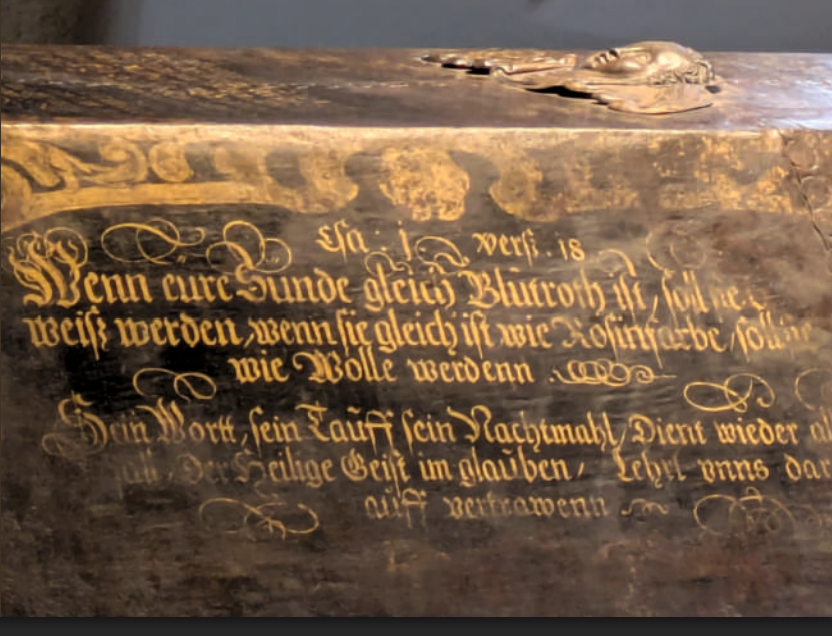 Esa : j verß . 18
Wenn eure Sunde gleich Blutroth ist / soll sie
weiß werden, wenn sie gleich ist wie Rosinfarbe / soll sie
wie Wolle werdenn
Sein Wortt, sein Tauff sein Nachtmahl / Dient wieder
Der Heilige Geist im glauben / Lehrt vnns dar
auff vertrawenn